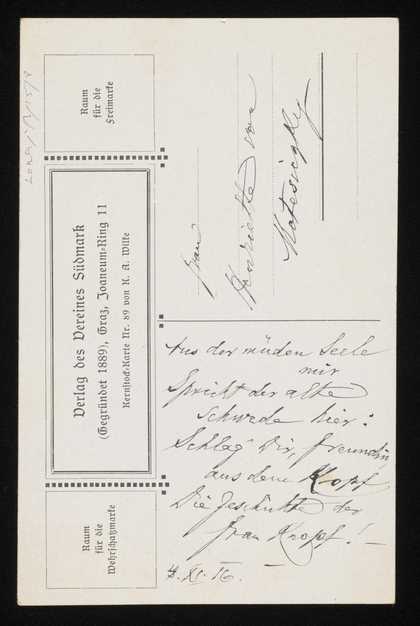 Raum
für die
Freimarke
Verlag des Vereines Südmark
(Gegründet 1889), Graz, Joaneum-Ring 11
Kernstock-Karte Nr. 89 von R. A. Wilke
Raum
für die
Wehrschatzmarke
Frau
Henriette von
Motesiczky
Aus der müden Seele
mir
Spricht der alte
Schwede hier:
Schlag' Dir, Freundin,
aus dem Kopf
Die Geschichte der
Frau Knopf! –
4. XI. 16. –